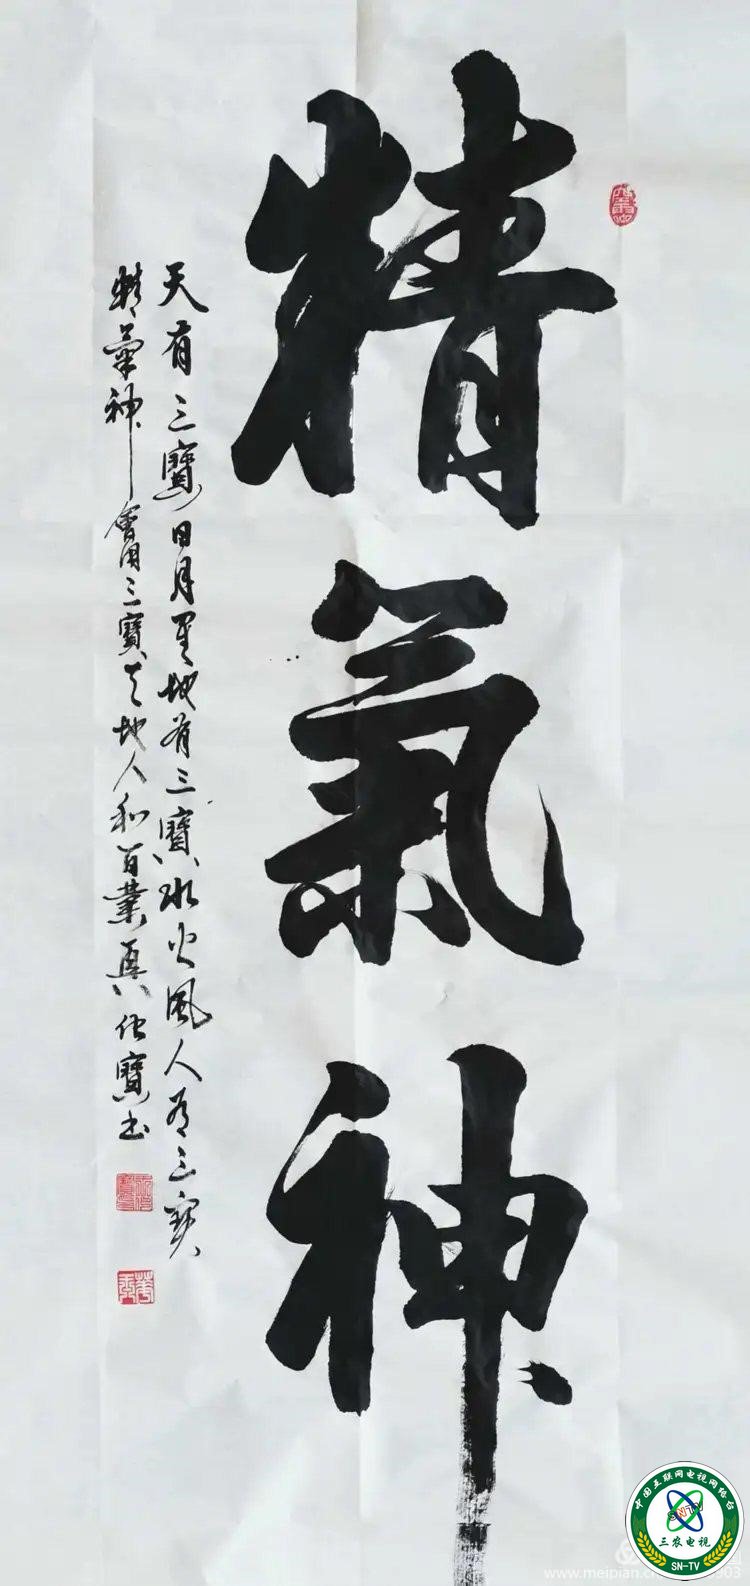 精氣神
天有三寶日月星地有三寶水火風人有三寶
精氣神會用三寶天地人和百業興寶书
中国互联网电视网络台
SNTV
三农电视
SN-TV
www.meipian.cn